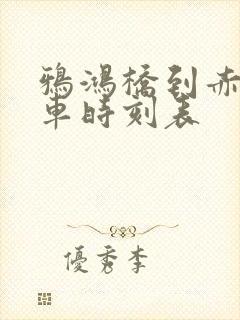 鴉鴻橋到赤
車時刻表
優秀李